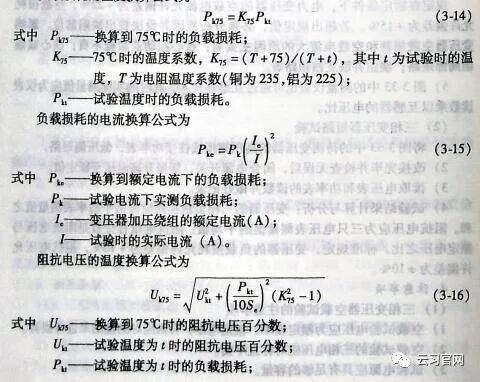 P_{k75}=K_{75}P_{kt} (3-14)
式中 P_{k75}——换算到75℃时的负载损耗；
K_{75}——75℃时的温度系数，K_{75}=(T+75)/(T+t)，其中t为试验时的温
度，T为电阻温度系数(铜为235,铝为225)；
P_{kt}——试验温度时的负载损耗。
负载损耗的电流换算公式为
P_{ke}=P_k(I_e/I)^2 (3-15)
式中 P_{ke}——换算到额定电流下的负载损耗；
P_k——试验电流下实测负载损耗；
I_e——变压器加压绕组的额定电流(A)；
I——试验时的实际电流(A)。
阻抗电压的温度换算公式为
U_{k75}=√(U_{kt}^2+(P_{kt}/10S_e)^2(K_{75}^2-1)) (3-16)
式中 U_{k75}——换算到75℃时的阻抗电压百分数；
U_{kt}——试验温度为t时的阻抗电压百分数；
P_{kt}——试验温度为t时的负载损耗；
云习官网